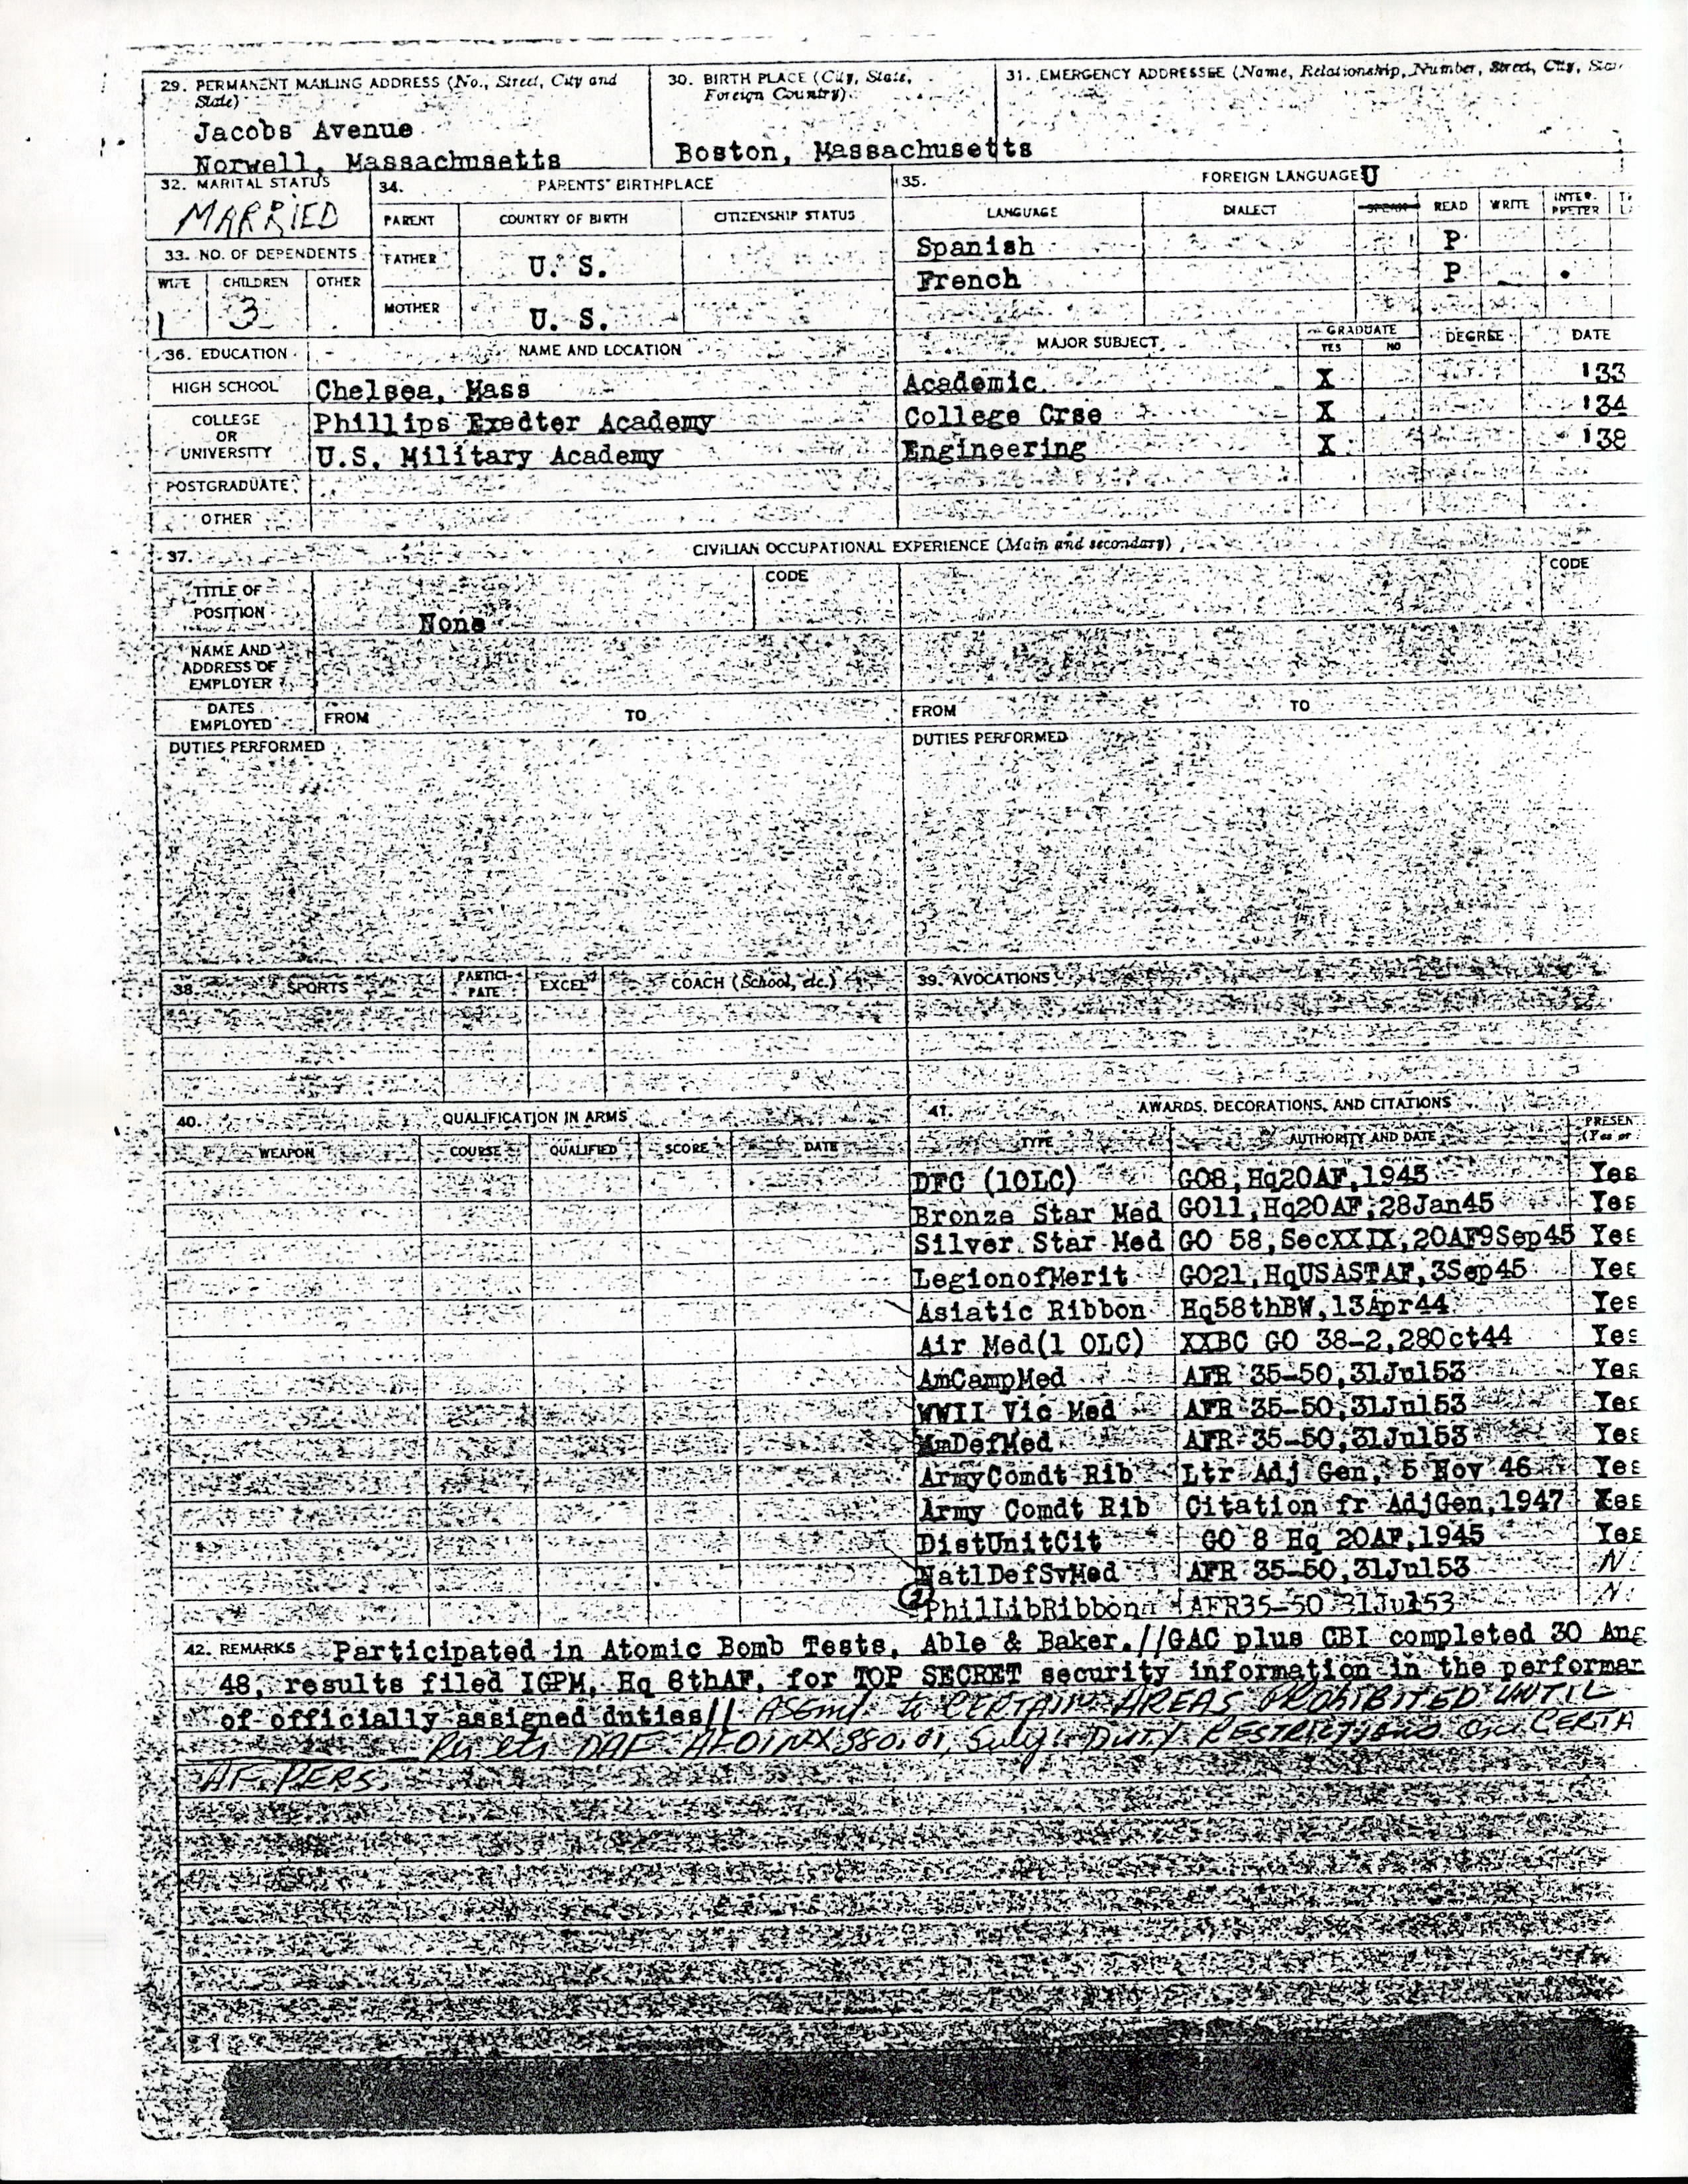 29. PERMANENT MAILING ADDRESS (No., Street, City and State)
Jacobs Avenue
Norwell, Massachusetts
30. BIRTH PLACE (City, State, Foreign Country)
Boston, Massachusetts
31. EMERGENCY ADDRESSEE (Name, Relationship, Number, Street, City,
32. MARITAL STATUS
MARRIED
33. NO. OF DEPENDENTS
WIFE CHILDREN OTHER
1 3
34. PARENTS' BIRTHPLACE
PARENT COUNTRY OF BIRTH CITIZENSHIP STATUS
FATHER U. S.
MOTHER U. S.
35. FOREIGN LANGUAGE U
LANGUAGE DIALECT SPEAK READ WRITE INTER-PRETER
Spanish P
French P
36. EDUCATION NAME AND LOCATION MAJOR SUBJECT GRADUATE YES NO DEGREE DATE
HIGH SCHOOL Chelsea, Mass Academic X '33
COLLEGE OR UNIVERSITY Phillips Exedter Academy College Crse X '34
U.S. Military Academy Engineering X '38
POSTGRADUATE
OTHER
37. CIVILIAN OCCUPATIONAL EXPERIENCE (Main and secondary)
TITLE OF POSITION None CODE CODE
NAME AND ADDRESS OF EMPLOYER
DATES EMPLOYED FROM TO FROM TO
DUTIES PERFORMED DUTIES PERFORMED
38. SPORTS PARTICI-PATE EXCEL COACH (School, etc.) 39. AVOCATIONS
40. QUALIFICATION IN ARMS
WEAPON COURSE QUALIFIED SCORE DATE
41. AWARDS, DECORATIONS, AND CITATIONS
TYPE AUTHORITY AND DATE PRESEN (Yes or
DFC (1OLC) GO8, Hq20AF, 1945 Yes
Bronze Star Med GO11, Hq20AF, 28Jan45 Yes
Silver Star Med GO 58, SecXXIX, 20AF9Sep45 Yes
LegionofMerit GO21, HqUSASTAF, 3Sep45 Yes
Asiatic Ribbon Hq58thBW, 13Apr44 Yes
Air Med(1 OLC) XXBC GO 38-2, 28Oct44 Yes
AmCampMed AFR 35-50, 31Jul53 Yes
WWII Vic Med AFR 35-50, 31Jul53 Yes
AmDefMed AFR 35-50, 31Jul53 Yes
ArmyComdt Rib Ltr Adj Gen, 5 Nov 46 Yes
Army Comdt Rib Citation fr AdjGen, 1947 Yes
DistUnitCit GO 8 Hq 20AF, 1945 Yes
NatlDefSvMed AFR 35-50, 31Jul53 N
PhilLibRibbon AFR35-50 31Jul53 N
42. REMARKS Participated in Atomic Bomb Tests, Able & Baker.//GAC plus CBI completed 30 Aug
48, results filed IGPM, Hq 8thAF, for TOP SECRET security information in the performan
of officially assigned duties// ASGMT to CERTAIN AREAS PROHIBITED UNTIL
DAF AFOIN-X 380.01, Subj: DUTY RESTRICTIONS on CERTA
AF PERS.